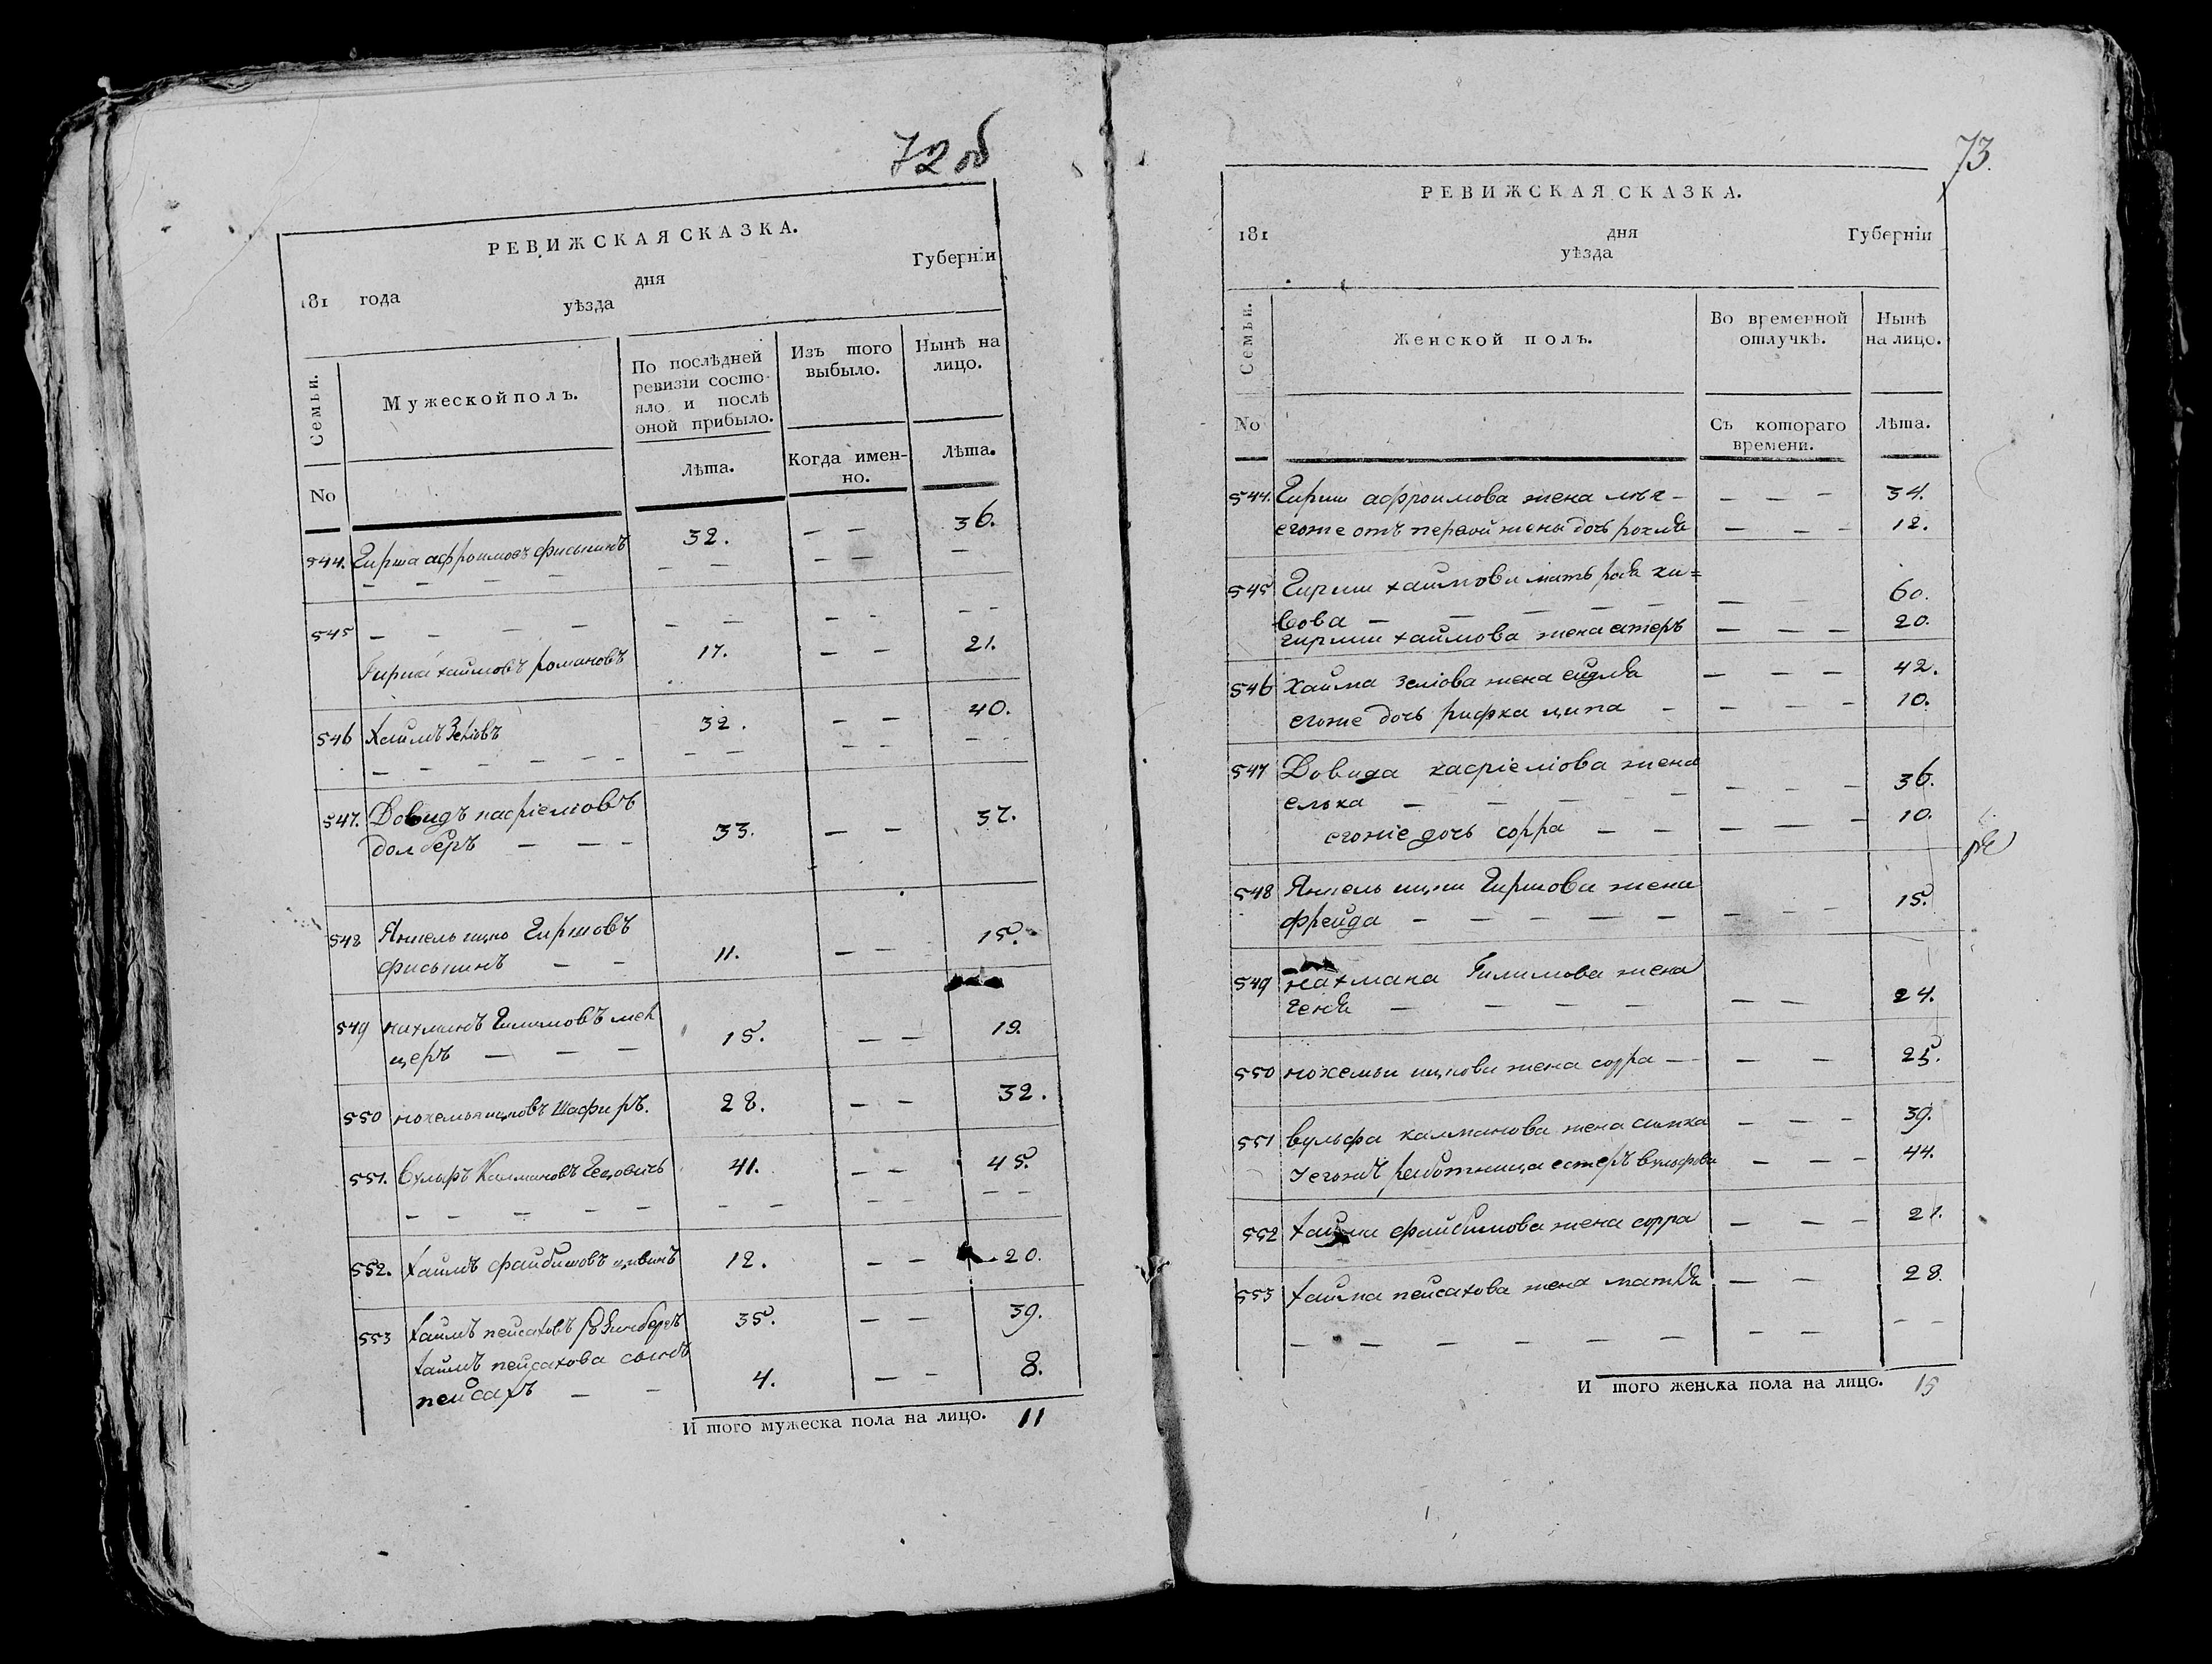 72 об
РЕВИЖСКАЯ СКАЗКА.
181 года дня уѣзда Губерніи
Семьи.
Мужеской полъ.
По послѣдней ревизіи состояло и послѣ оной прибыло.
Изъ того выбыло.
Нынѣ на лицо.
No
Лѣта.
Когда именно.
Лѣта.
544. Гирша афроимовъ фиськинъ 32. — — 36.
— — — — — — — — —
545 — — — — — — — — — —
Гирша хаимовъ романовъ 17. — — 21.
546 Хаимъ Зеліовъ 32. — — 40.
— — — — — — — — — — — —
547. Довидъ касріеліовъ
долберъ — — — 33. — — 37.
548 Янкель ицко Гиршовъ
фиськинъ — — 11. — — 15.
549 нахманъ Гилимовъ
церъ — — — 15. — — 19.
550 нохемья ицковъ Шафиръ. 28. — — 32.
551. Вульфъ Калмановъ 41. — — 45.
— — — — — — — — — — —
552. хаимъ файбишовъ цивинъ 12. — — 20.
553 хаимъ пейсаховъ 35. — — 39.
хаимъ пейсахова сынъ
пейсахъ — — 4. — — 8.
И того мужеска пола на лицо. 11
73.
РЕВИЖСКАЯ СКАЗКА.
181 дня уѣзда Губерніи
Семьи.
Женской полъ.
Во временной отлучкѣ.
Нынѣ на лицо.
No
Съ котораго времени.
Лѣта.
544. Гирши афроимова жена — — — — 34.
егоже отъ первой жены дочь рохля — — — 12.
545 Гирши хаимова мать
вова — — — — — — — 60.
гирши хаимова жена естеръ — — — 20.
546 Хаима Зеліова жена ейдля — — — 42.
егоже дочь рифка ципа — — — — 10.
547 Довида касріеліова жена
елька — — — — — — — — 36.
егоже дочь сорра — — — — — 10.
548 Янкель ицки Гиршова жена
фрейда — — — — — — — — 15.
549 нахмана Гилимова жена
Геня — — — — — — 24.
550 нохемьи ицкова жена сорра — — — 25.
551 вульфа калманова жена симка — — — 39.
Уегожъ работница естеръ вульфова — — — 44.
552 хаима файбишова жена сорра — — — 21.
553 хаима пейсахова жена матля — — 28.
— — — — — — — — — —
И того женска пола на лицо. 15